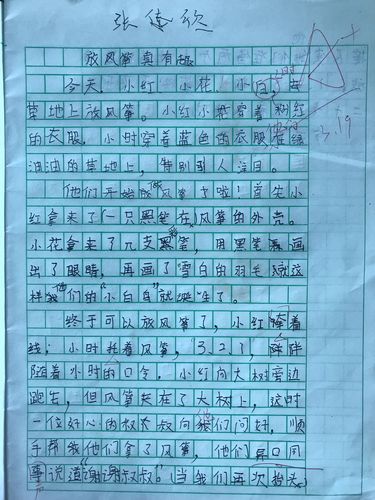 张倢欣
放风筝真有趣
今天,小红,小花,小时去
草地上放风筝。小红小花穿着粉红
的衣服,小时穿着蓝色的衣服在绿
油油的草地上,特别引人注目。
他们开始做风筝了啦!首先小
红拿来了一只风筝的外壳。
小花拿来了几支彩笔,用黑笔画
出了眼睛,再画了雪白的羽毛就这
样他们的“小白鸟”就诞生了。
终于可以放风筝了,小红
线;小时托着风筝,3.2.1,伴
随着小时的口令,小红向大树旁边
跑去,但风筝夹在了大树上,这时
一位好心的叔叔向他们问好,顺
手帮他们拿了风筝,他们异口同
声说道“谢谢叔叔”。(当我们再次抬头
A+
3.19